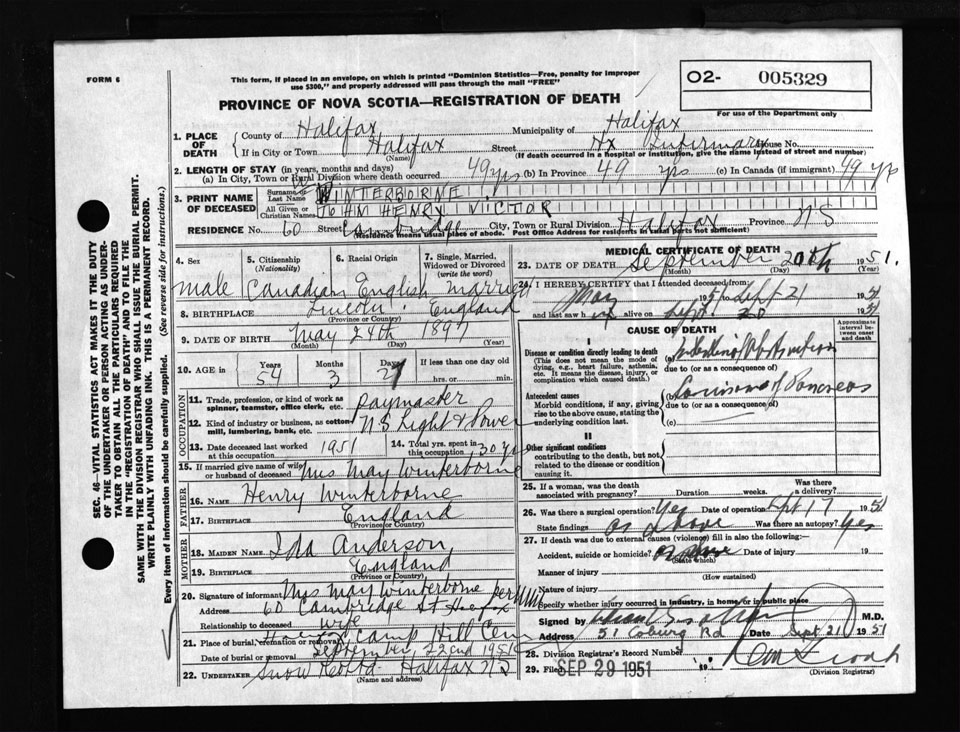 FORM 6
This form, if placed in an envelope, on which is printed "Dominion Statistics—Free, penalty for improper
use $300," and properly addressed will pass through the mail "FREE"
O2- 005329
PROVINCE OF NOVA SCOTIA—REGISTRATION OF DEATH
For use of the Department only
1. PLACE OF DEATH
County of Halifax Municipality of Halifax
If in City or Town Halifax Street Hx Infirmary House No.
(Name) (If death occurred in a hospital or institution, give the name instead of street and number)
2. LENGTH OF STAY (in years, months and days)
(a) In City, Town or Rural Division where death occurred 49 yrs (b) In Province 49 yrs (c) In Canada (if immigrant) 49 yrs
3. PRINT NAME OF DECEASED
Surname or Last Name WINTERBORNE
All Given or Christian Names JOHN HENRY VICTOR
RESIDENCE No. 60 Street Cambridge City, Town or Rural Division Halifax Province N S
(Residence means usual place of abode. Post Office Address for residents in rural parts not sufficient)
4. Sex
male
5. Citizenship (Nationality)
Canadian
6. Racial Origin
English
7. Single, Married, Widowed or Divorced (write the word)
married
8. BIRTHPLACE Lincoln England
(Province or Country)
9. DATE OF BIRTH May 24th 1897
(Month) (Day) (Year)
10. AGE Years 54 Months 3 Days 27 If less than one day old
hrs. or min.
OCCUPATION
11. Trade, profession, or kind of work as spinner, teamster, office clerk, etc. paymaster
12. Kind of industry or business, as cotton mill, lumbering, bank, etc. N S Light & Power
13. Date deceased last worked at this occupation 1951
14. Total yrs. spent in this occupation 30 yrs
15. If married give name of wife or husband of deceased Mrs May Winterborne
FATHER
16. NAME Henry Winterborne
17. BIRTHPLACE England
(Province or Country)
MOTHER
18. MAIDEN NAME Ida Anderson
19. BIRTHPLACE England
(Province or Country)
20. Signature of informant Mrs May Winterborne per
Address 60 Cambridge St Halifax
Relationship to deceased wife
21. Place of burial, cremation or removal Camp Hill Cem
Date of burial or removal September 22nd 1951
22. UNDERTAKER Snow Halifax N S
(Name and address)
MEDICAL CERTIFICATE OF DEATH
23. DATE OF DEATH September 20th 1951.
(Month) (Day) (Year)
24. I HEREBY CERTIFY that I attended deceased from
May 1951 to Sept 21 1951
and last saw h alive on Sept 20 1951
CAUSE OF DEATH
Approximate interval between onset and death
I
Disease or condition directly leading to death
(This does not mean the mode of dying, e.g., heart failure, asthenia, etc. It means the disease, injury, or complication which caused death.)
(a) Intestinal Obstruction
due to (or as a consequence of)
Antecedent causes
Morbid conditions, if any, giving rise to the above cause, stating the underlying condition last.
(b) of Pancreas
due to (or as a consequence of)
(c)
II
Other significant conditions
contributing to the death, but not related to the disease or condition causing it.
25. If a woman, was the death associated with pregnancy? Duration weeks. Was there a delivery?
26. Was there a surgical operation? Yes Date of operation Sept 17 1951
State findings as above Was there an autopsy? Yes
27. If death was due to external causes (violence) fill in also the following:—
Accident, suicide or homicide? Date of injury 19
(State which)
Manner of injury
(How sustained)
Nature of injury
Specify whether injury occurred in industry, in home, or in public place
Signed by M.D.
Address 51 Coburg Rd Date Sept 21 1951
28. Division Registrar's Record Number
29. Filed SEP 29 1951 19
(Division Registrar)
SEC. 46—VITAL STATISTICS ACT MAKES IT THE DUTY
OF THE UNDERTAKER OR PERSON ACTING AS UNDER-
TAKER TO OBTAIN ALL THE PARTICULARS REQUIRED
IN THE "REGISTRATION OF DEATH" AND TO FILE THE
SAME WITH THE DIVISION REGISTRAR WHO SHALL ISSUE THE BURIAL PERMIT.
WRITE PLAINLY WITH UNFADING INK. THIS IS A PERMANENT RECORD.
Every item of information should be carefully supplied. (See reverse side for instructions.)